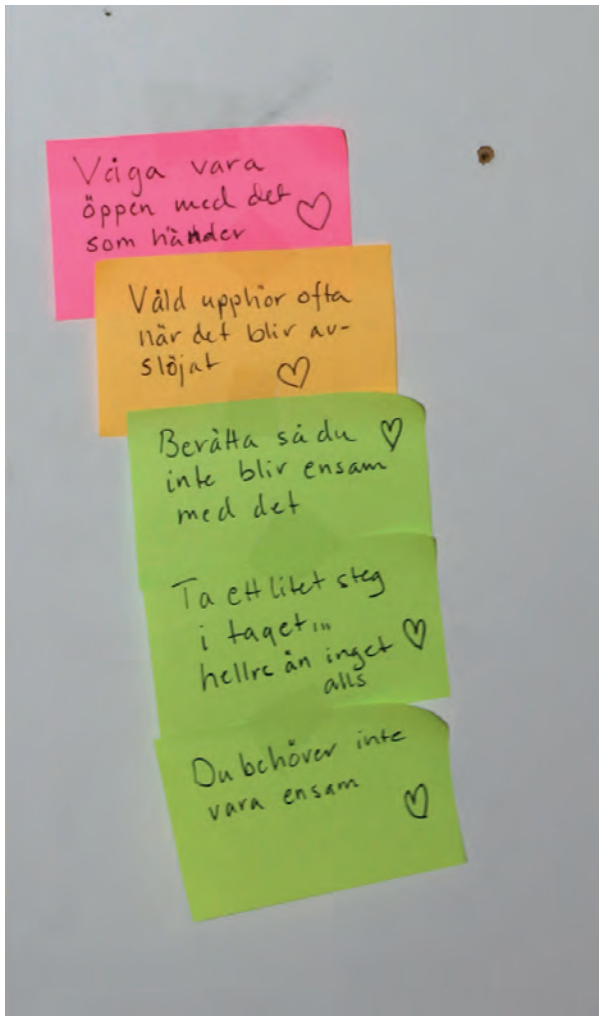 Våga vara
öppen med det
som händer
Våld upphör ofta
när det blir av-
slöjat
Berätta så du
inte blir ensam
med det
Ta ett litet steg
i taget...
hellre än inget
alls
Du behöver inte
vara ensam